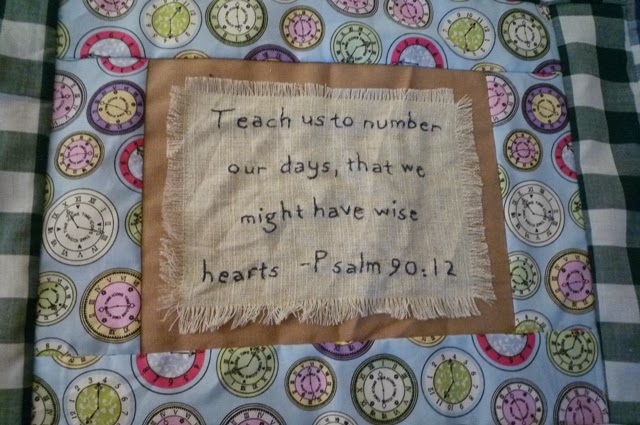 Teach us to number
our days, that we
might have wise
hearts -Psalm 90:12